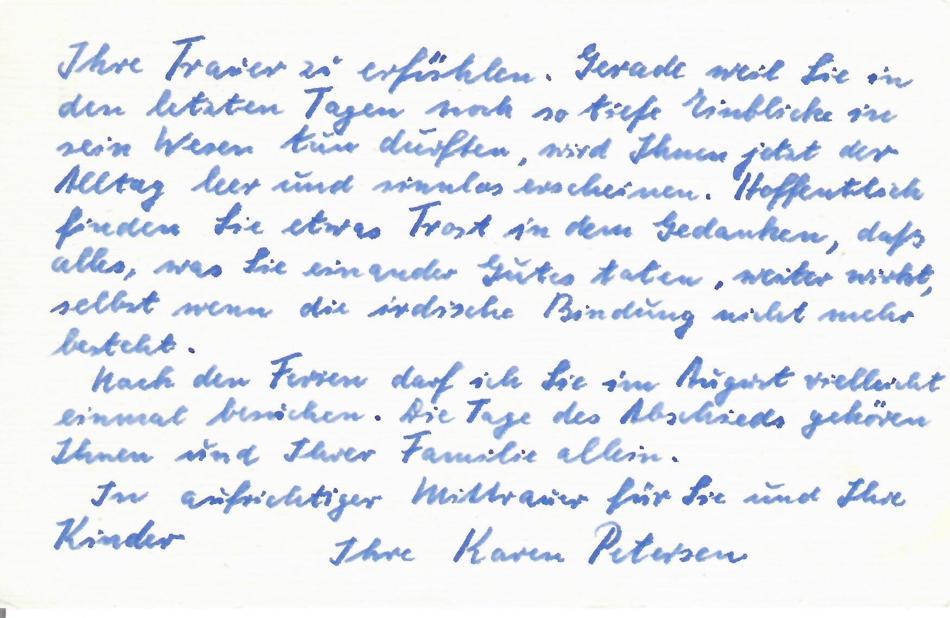 Ihre Trauer zu erfühlen. Gerade weil Sie in
den letzten Tagen noch so tiefe Einblicke in
sein Wesen tun durften, wird Ihnen jetzt der
Alltag leer und sinnlos erscheinen. Hoffentlich
finden Sie etwas Trost in dem Gedanken, daß
alles, was Sie einander Gutes taten, weiter wirkt,
selbst wenn die irdische Bindung nicht mehr
besteht.
Nach den Ferien darf ich Sie im August vielleicht
einmal besuchen. Die Tage des Abschieds gehören
Ihnen und Ihrer Familie allein.
In aufrichtiger Mittrauer für Sie und Ihre
Kinder
Ihre Karen Petersen